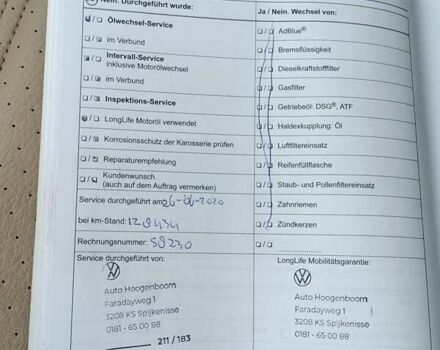 Nein. Durchgeführt wurde:
Ölwechsel-Service
im Verbund
Intervall-Service
inklusive Motorölwechsel
im Verbund
Inspektions-Service
LongLife Motoröl verwendet
Korrosionsschutz der Karosserie prüfen
Reparaturempfehlung
Kundenwunsch
(auch auf dem Auftrag vermerken)
Service durchgeführt am: 26-06-2020
bei km-Stand:
Rechnungsnummer: 59230
Service durchgeführt von:
Auto Hoogenboom
Faradayweg 1
3208 KS Spijkenisse
0181 - 65 00 88
211 / 183
Ja / Nein. Wechsel von:
AdBlue®
Bremsflüssigkeit
Dieselkraftstofffilter
Gasfilter
Getriebeöl: DSG®, ATF
Haldexkupplung: Öl
Luftfiltereinsatz
Reifenfüllflasche
Staub- und Pollenfiltereinsatz
Zahnriemen
Zündkerzen
LongLife Mobilitätsgarantie:
Auto Hoogenboom
Faradayweg 1
3208 KS Spijkenisse
0181 - 65 00 88